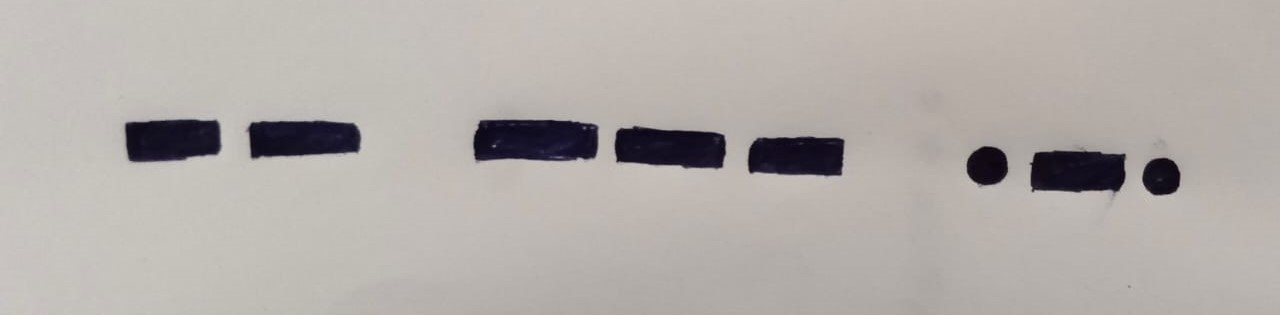 -- --- .-.